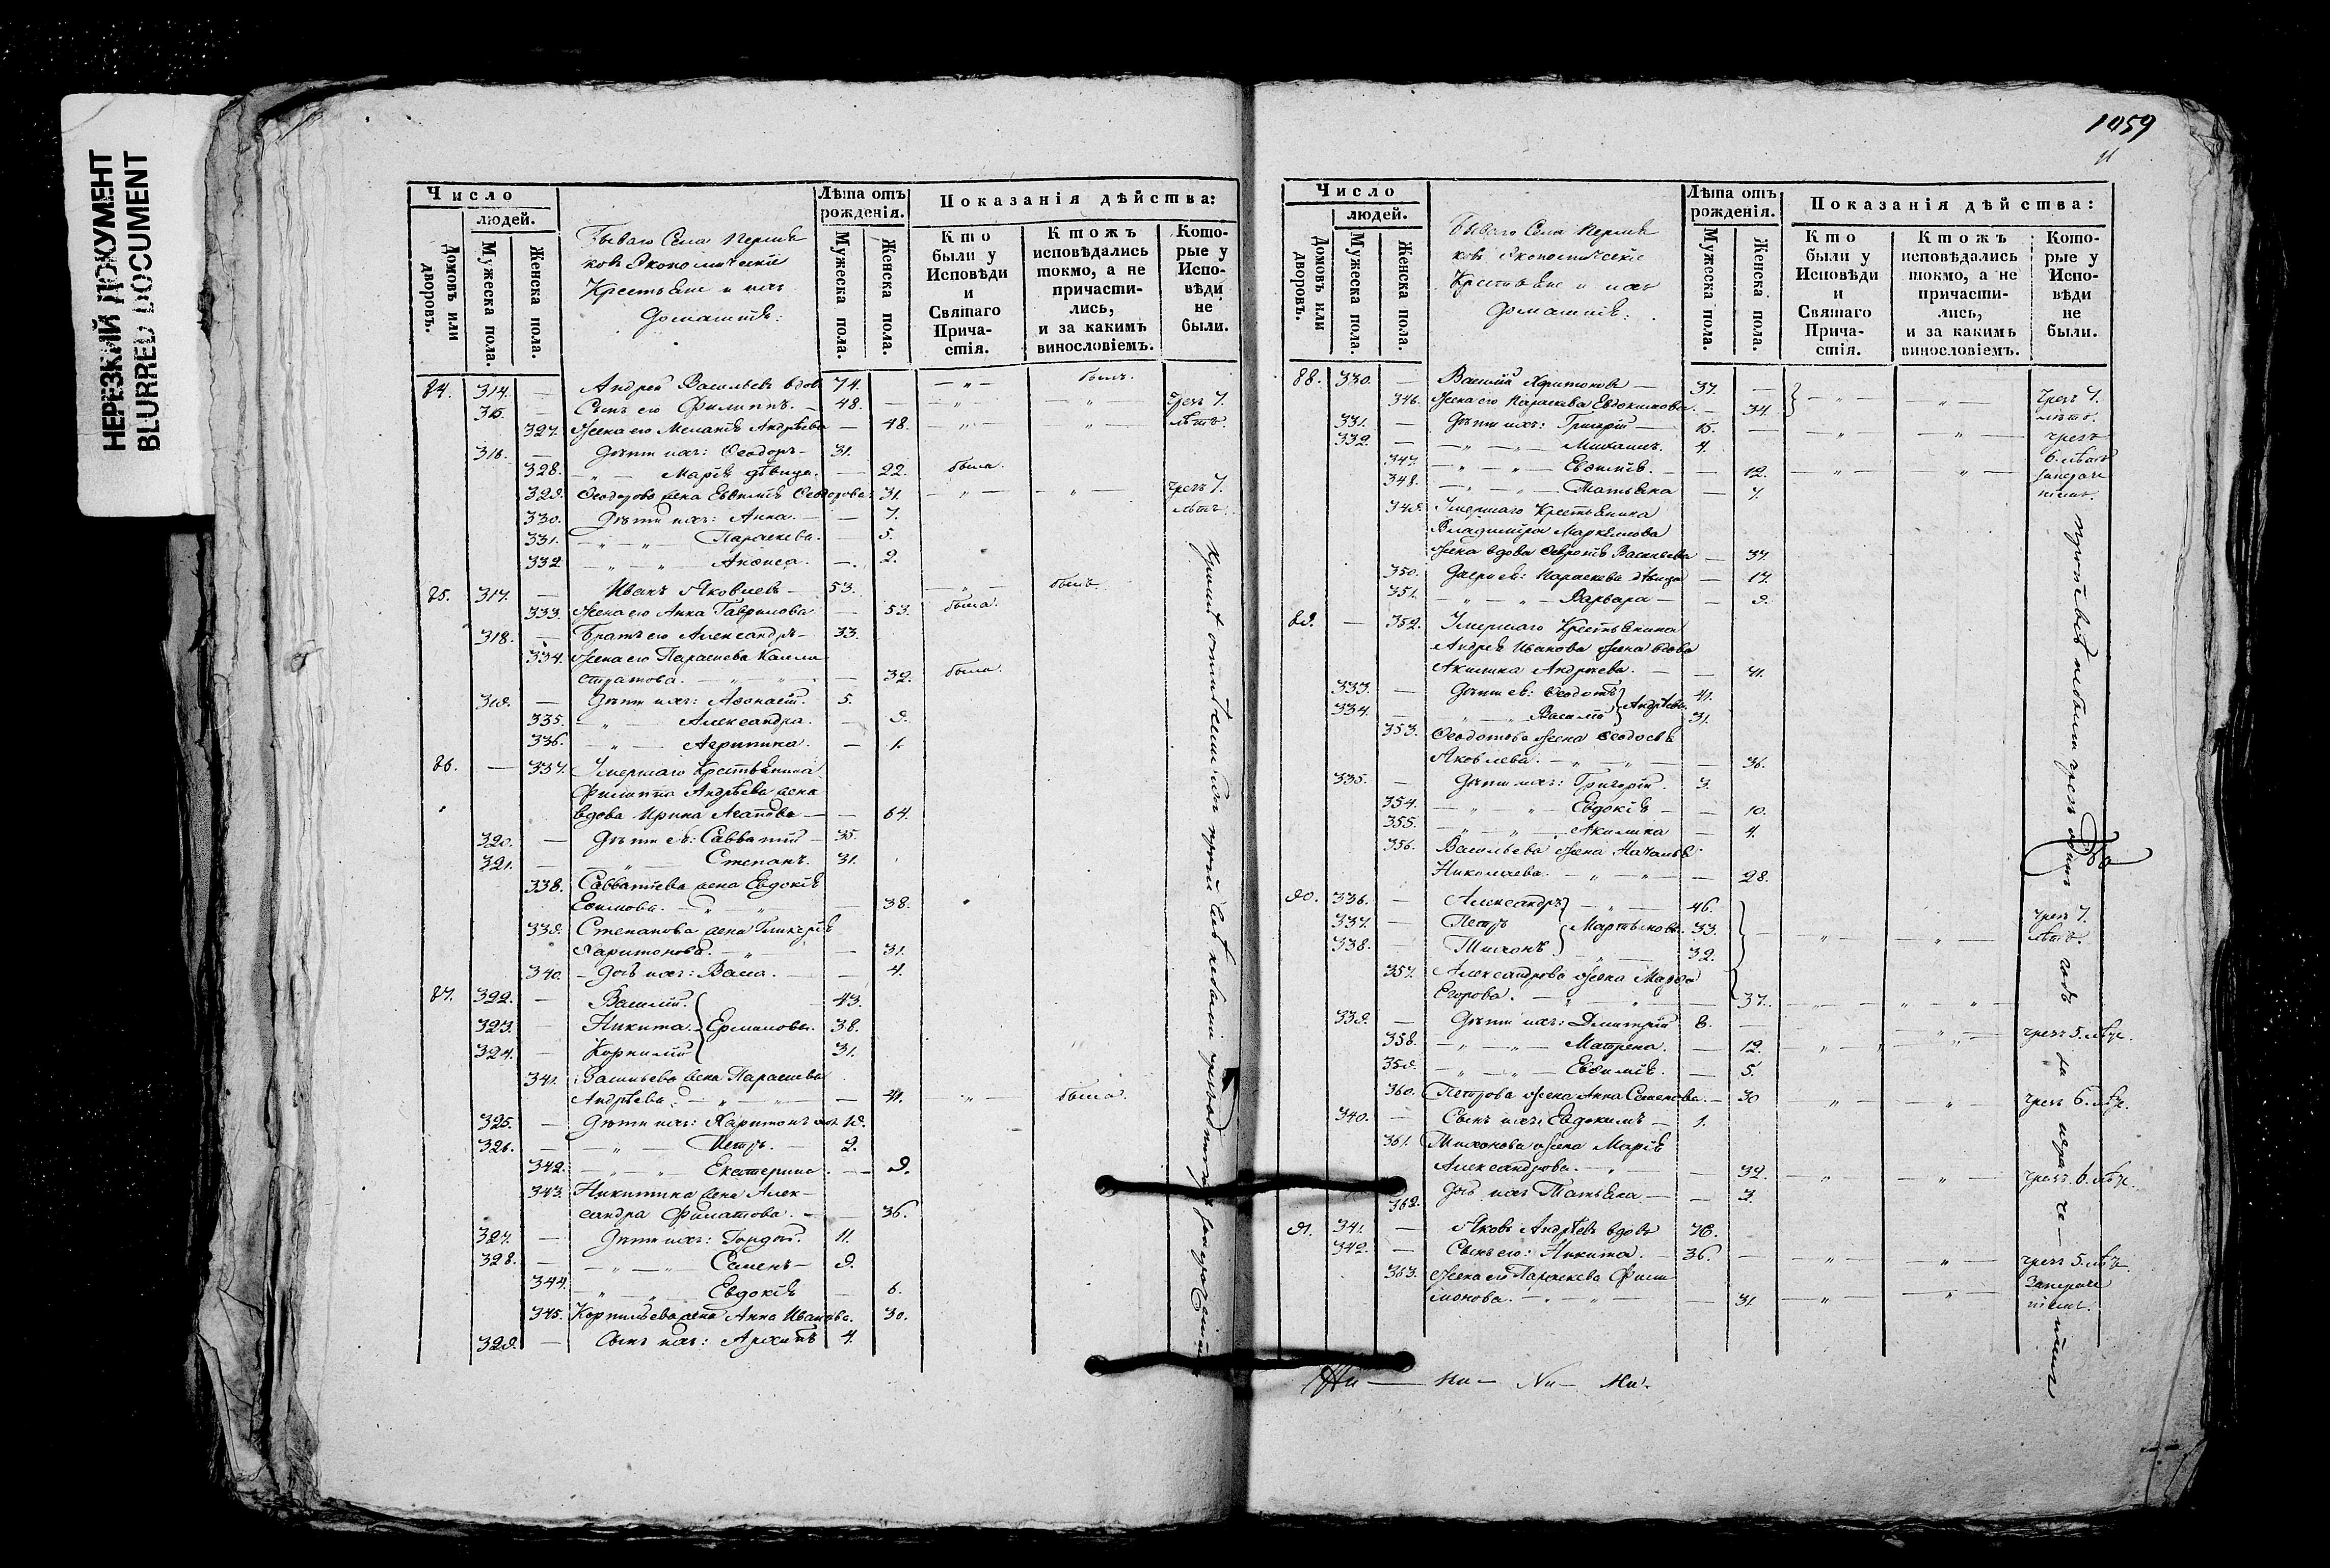 НЕРЕЗКИЙ ДОКУМЕНТ
BLURRED DOCUMENT
Число
людей.
Домовъ или дворовъ.
Мужеска пола.
Женска пола.
Бываго Села
Экономическіе
Крестьяне и ихъ
домашніе:
Лѣта отъ рожденія.
Мужеска пола.
Женска пола.
Показанія дѣйства:
Кто были у Исповѣди и Святаго Причастія.
Ктожъ исповѣдались токмо, а не причастились, и за какимъ винословіемъ.
Которые у Исповѣди не были.
84. 314. — Андрей Васильевъ вдов 74. былъ.
315. — Сынъ его Филиппъ. — 48. чрезъ 7.
327. Жена его Меланія Андрѣева — 48. лѣтъ.
316. — Дѣти ихъ: Ѳеодоръ — 31.
328. Марія дѣвица. — 22. была.
329. Ѳеодорова жена Евѳимія Ѳеодорова. 31. чрезъ 7.
330. Дѣти ихъ: Анна. — 7. лѣтъ.
331. Параскева. — 5.
332. Анѳиса. — 2.
85. 317. — Иванъ Яковлевъ — 53. былъ.
333. Жена его Анна Гаврилова — 53. была.
318. — Братъ его Александръ — 33.
334. Жена его Параскева Калли
стратова. — 32. была.
319. — Дѣти ихъ: Аѳанасій. 5.
335. Александра. — 9.
336. Агрипина. — 1.
86. — 337. Умершаго Крестьянина
Филиппа Андрѣева жена
вдова Ирина Агапова — 64.
320. — Дѣти ея: Савватій — 35.
321. — Степанъ. 31.
338. Савватіева жена Евдокія
Еѳимова. — 38.
339. Степанова жена Гликерія
Харитонова. — 31.
340. — Дочь ихъ: Васса. — 4.
87. 322. — Василій. 43.
323. — Никита. Ермиловы. 38.
324. — Корнилій 31.
341. Васильева жена Параскева
Андрѣева. — 41. была.
325. — Дѣти ихъ: Харитонъ 19.
326. — Петръ. — 2.
342. Екатерина. — 9.
343. Никитина жена Алек-
сандра Филатова. — 36.
327. — Дѣти ихъ: Гордѣй. 11.
328. — Семенъ — 9.
344. Евдокія — 6.
345. Корнильева жена Анна Иванова. 30.
329. — Сынъ ихъ: Архипъ 4.
1059
Число
людей.
Домовъ или дворовъ.
Мужеска пола.
Женска пола.
Бываго Села
Экономическіе
Крестьяне и ихъ
домашніе:
Лѣта отъ рожденія.
Мужеска пола.
Женска пола.
Показанія дѣйства:
Кто были у Исповѣди и Святаго Причастія.
Ктожъ исповѣдались токмо, а не причастились, и за какимъ винословіемъ.
Которые у Исповѣди не были.
88. 330. — Василій Харитоновъ — 37. — чрезъ 7.
346. Жена его Параскева Евдокимова. — 34. лѣтъ.
331. — Дѣти ихъ: Григорій — 15. чрезъ
332. — Михаилъ. 4. 6. лѣтъ
347. Евѳимія. — 12.
348. Татьяна — 7.
349. Умершаго Крестьянина
Владимира
жена вдова Васильева — 37
350. Дщери ея: Параскева дѣвица — 17.
351. Варвара — 9.
89. — 352. Умершаго Крестьянина
Андрея Иванова жена вдова
Акилина Андрѣева. — 71.
333. — Дѣти ея: Ѳеодотъ 41.
334. — Василій Андрѣевы 31.
353. Ѳеодотова жена Ѳеодосія
Яковлева. — 36.
335. — Дѣти ихъ: Григорій. 3.
354. Евдокія — 10.
355. Акилина — 4.
356. Васильева жена Наталія
Николаева. — 28.
90. 336. — Александръ 46.
337. — Петръ Мартыновы. 33. чрезъ 7.
338. — Тихонъ 32. лѣтъ.
357. Александрова жена Марѳа
Егорова. — 37.
339. — Дѣти ихъ: Димитрій 8.
358. Матрена. — 12. чрезъ 5. лѣтъ.
359. Евѳимія. — 5.
360. Петрова жена Анна Семенова. — 30 чрезъ 6. лѣтъ.
340. — Сынъ ихъ: Евдокимъ — 1.
361. Тихонова жена Марія
Александрова. — 32. чрезъ 6. лѣтъ.
362. Дочь ихъ Татьяна — 3.
91. 341. — Яковъ Андрѣевъ вдовъ 70.
342. — Сынъ его: Никита. — 36. чрезъ 5. лѣтъ.
363. Жена его Параскева Фили
монова. — 31.